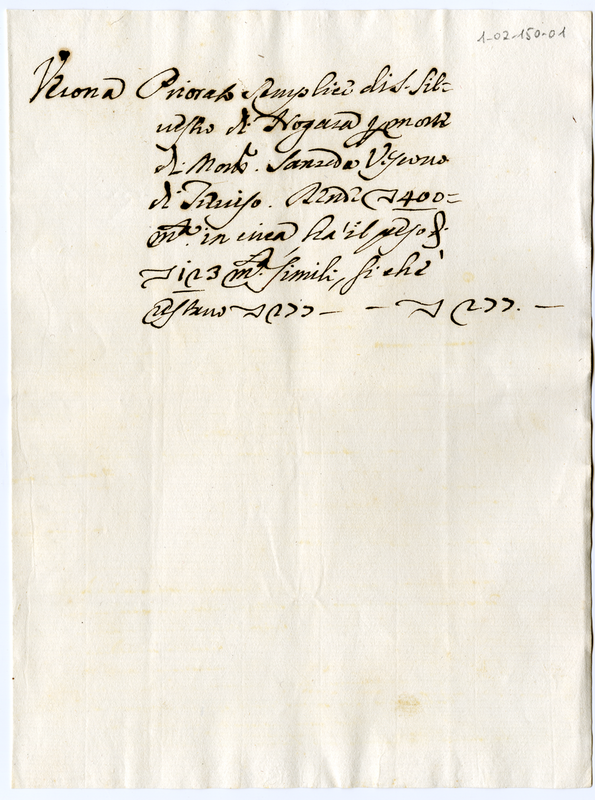 1-02-150-01
Verona Priorato Semplice di S. Sil=
vestro di Nogara p morte
di Mons. Sanseda Vescovo
di Treviso. Rende 400=
mta in circa hà il peso di
123 mta simili, si che
restano 277 — — 277. —